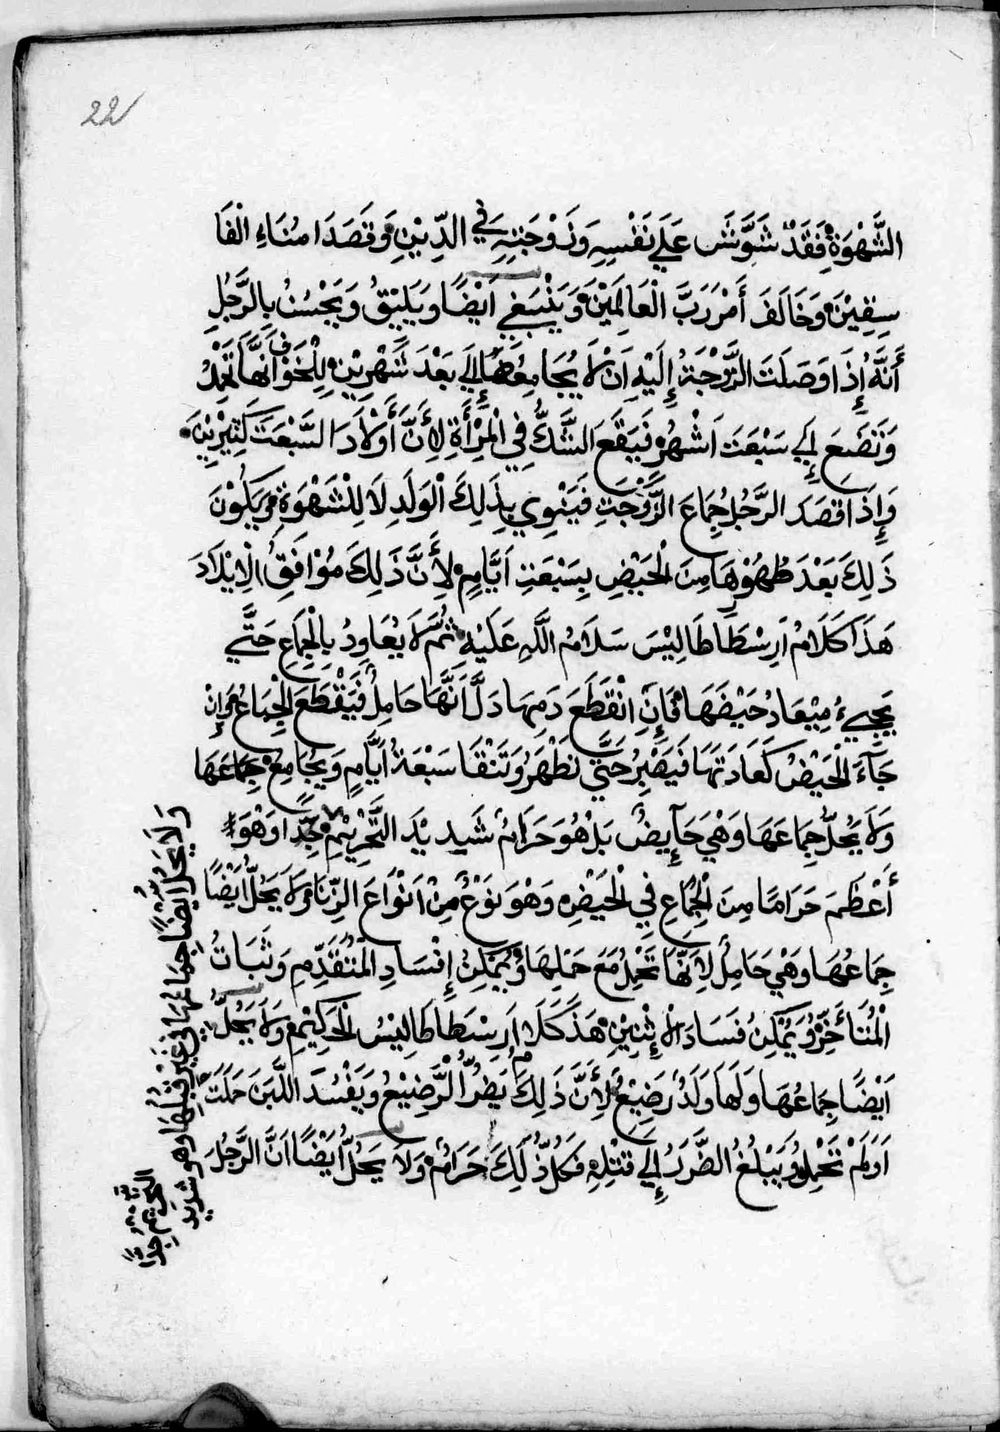 22
الشَّهْوَةُ فَقَدْ شَوَّشَ عَلَي نَفْسِهِ وَزَوْجَتِهِ فِي الدِّيْنِ وَقَصَدَ امْنَاءِ الْفَا
سِقِيْنَ وَخَالَفَ أَمْرَ رَبَّ الْعَالَمِيْنَ وَيَنْبَغِي اَيْضًا وَيَلِيْقُ وَيَحْسُنُ بِالرَّجُلِ
أَنَّهُ إِذَا وَصَلَتَ الزَّوْجَةُ إِلَيْهِ اَنْ لَا يُجَامِعُهَا إِلَي بَعْدَ شَهْرِيْنِ لِلْخَوْفِ اَنَّهَا تَحْمِلُ
وَتَضَعِ إِلَي سَبْعَتَ اَشْهُرْ فَيَقَعَ الشَّكُّ فِي الْمِرْأَةِ لِأَنَّ أَوْلَادَ السَّبْعَتَ كَثِيْرِيْنَ
وَإِذَا قَصَدَ الرَّجُلُ جِمَاعَ الزَّوْجَتِ فَيَنْوِي بِذَلِكَ الْوَلَدِ لَا لِلْشَهْوَةِ وَيَكُوْنَ
ذَلِكَ بَعْدَ طُهُوْرِهَا مِنَ الْحَيْضِ بِسَبْعَتِ اَيَّامٍ لِأَنَّ ذَلِكَ مُوْافِقُ الْاِيْلَادَ
هَذَا كَلَامُ اَرِسْطَاطَالِيْسَ سَلَامُ اللَّهِ عَلَيْهِ ثُمَّ لَا يُعَاوِدُ بِالْجِمَاعِ حَتَّي
يَجِيءُ مِيْعَادُ حَيْضَهَا فَإِنِ انْقَطَعَ دَمِهَا دَلَّ اَنَّهَا حَامِلُ فَيَقْطَعَ الْجِمَاعُ وَإِنْ
جَآءَ الْحَيْضُ كَعَادَتَهَا فَيَصْبِرُ حَتَّي تَطْهَرُ وَتَنْقَا سَبْعَةُ اَيَّامٍ وَيُجَامِعْ جِمَاعَهَا
وَلَا يَحُلُّ جِمَاعَهَا وَهْيَ حَآيِضُ بَلْ هُوَ حَرَامُ شَدِيْدَ التَّحْرِيْمِ جِدًّا وَهْوَ
أَعْظَمَ حَرَامًا مِنَ الْجِمَاعِ فِي الْحَيْضِ وَهْوَ نَوْعُ مِنْ اَنْوَاعَ الزِّنَا وَلَا يَحُلُّ اَيْضًا
جِمَاعُهَا وَهْيَ حَامِلُ لِأَنَّهَا تَحْمِلُ مَعَ حَمْلِهَا وَيُمْكِنُ إِفْسَادِ الْمُتَقَدِّمِ وَثَبَاتُ
الْمُتَأَخِّرُ وَيُمْكِنُ فَسَادَ الْاِثْنِيْنِ هَذَ كَلَامُ اَرِسْطَاطَالِيْسُ الْحَكِيْمِ وَلَا يَحُلُّ
اَيْضًا جِمَاعُهَا وَلَهَا وَلَدُ رَضِيْعُ لِأَنَّ ذَلِكَ يَضُرُّ الرَّضِيْعُ وَيَفْسُدَ اللَّبَنَ حَمَلَتْ
اَوَلَمْ تَحْمِلُ وَيَبْلُغُ الضَّرَرُ إِلَي قَتْلِهِ فَكُلُّ ذَلِكَ حَرَامُ وَلَا يَحُلُّ اَيْضًا اَنَّ الرَّجُلَ
وَلَا يَحُلُّ اَيْضًا جِمَاعُهَا فِي غَيْرِ قُبُلِهَا وَهو شديد
التحريم جِدًّا